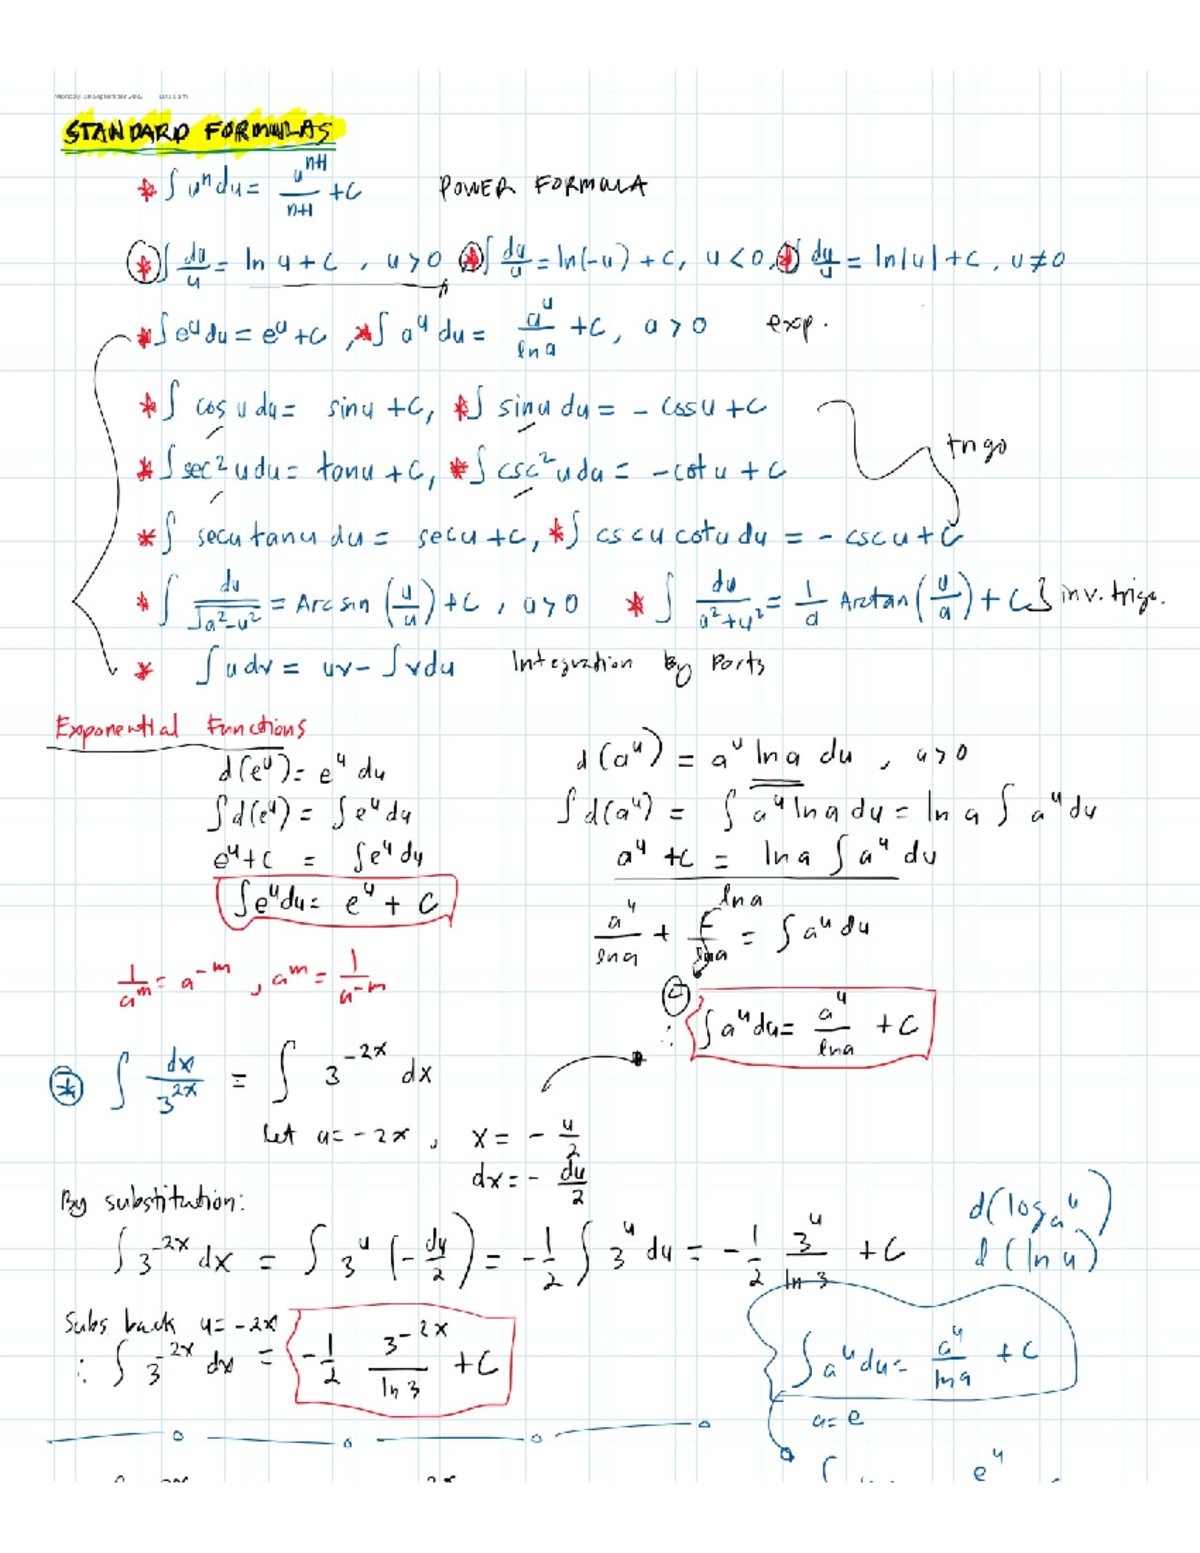 STANDARD FORMULAS
* ∫ uⁿ du = uⁿ⁺¹/n+1 + C POWER FORMULA
* ∫ du/u = ln u + C , u > 0 * ∫ du/u = ln(-u) + C, u < 0, * ∫ du/u = ln|u| + C , u ≠ 0
* ∫ e^u du = e^u + C , * ∫ a^u du = a^u/ln a + C, a > 0 exp.
* ∫ cos u du = sin u + C, * ∫ sin u du = - cos u + C
trigo
* ∫ sec² u du = tan u + C, * ∫ csc² u du = -cot u + C
* ∫ sec u tan u du = sec u + C, * ∫ csc u cot u du = - csc u + C
* ∫ du/√(a²-u²) = Arcsin (u/a) + C , a > 0 * ∫ du/(a²+u²) = 1/a Arctan (u/a) + C } inv. trigo.
* ∫ u dv = uv - ∫ v du Integration By Parts
Exponential Functions
d(e^u) = e^u du
∫ d(e^u) = ∫ e^u du
e^u + C = ∫ e^u du
∫ e^u du = e^u + C
d(a^u) = a^u ln a du , a > 0
∫ d(a^u) = ∫ a^u ln a du = ln a ∫ a^u du
a^u + C = ln a ∫ a^u du
ln a
a^u/ln a + C/ln a = ∫ a^u du
C
∴ ∫ a^u du = a^u/ln a + C
1/a^m = a^-m , a^m = 1/a^-m
* ∫ dx/3^2x = ∫ 3^-2x dx
Let u = -2x , x = - u/2
dx = - du/2
By substitution:
∫ 3^-2x dx = ∫ 3^u (- du/2) = - 1/2 ∫ 3^u du = - 1/2 3^u/ln 3 + C
Subs back u = -2x
∴ ∫ 3^-2x dx = - 1/2 3^-2x/ln 3 + C
d(log_a u)
d(ln u)
∫ a^u du = a^u/ln a + C
a = e
∫ e^u